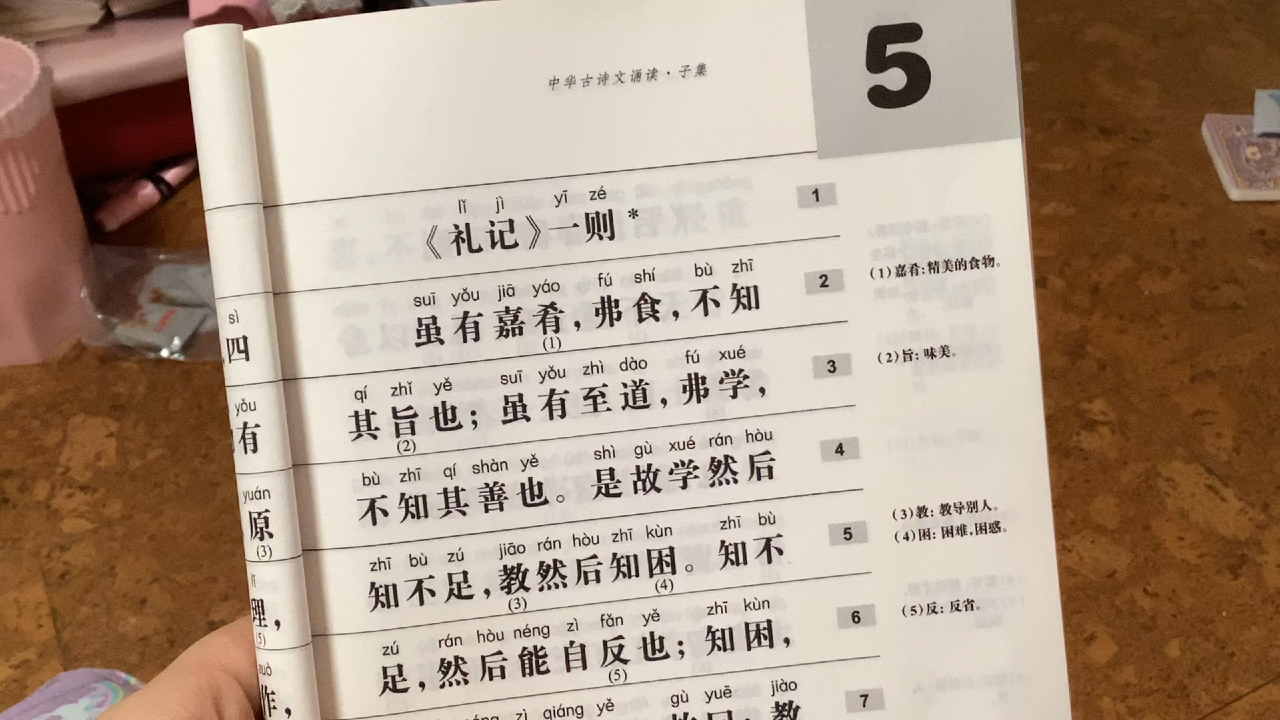 中华古诗文诵读·子集
5
lǐ jì yī zé
《礼记》一则* 1
suī yǒu jiā yáo fú shí bù zhī
虽有嘉肴,弗食,不知 2
(1)
(1)嘉肴:精美的食物。
qí zhǐ yě suī yǒu zhì dào fú xué
其旨也;虽有至道,弗学, 3
(2)
(2)旨:味美。
bù zhī qí shàn yě shì gù xué rán hòu
不知其善也。是故学然后 4
zhī bù zú jiāo rán hòu zhī kùn zhī bù
知不足,教然后知困。知不 5
(3) (4)
(3)教:教导别人。
(4)困:困难,困惑。
zú rán hòu néng zì fǎn yě zhī kùn
足,然后能自反也;知困, 6
(5)
(5)反:反省。
zì qiáng yě gù yuē jiào
7
sì
四
yǒu
有
yuán
原
(3)
理,